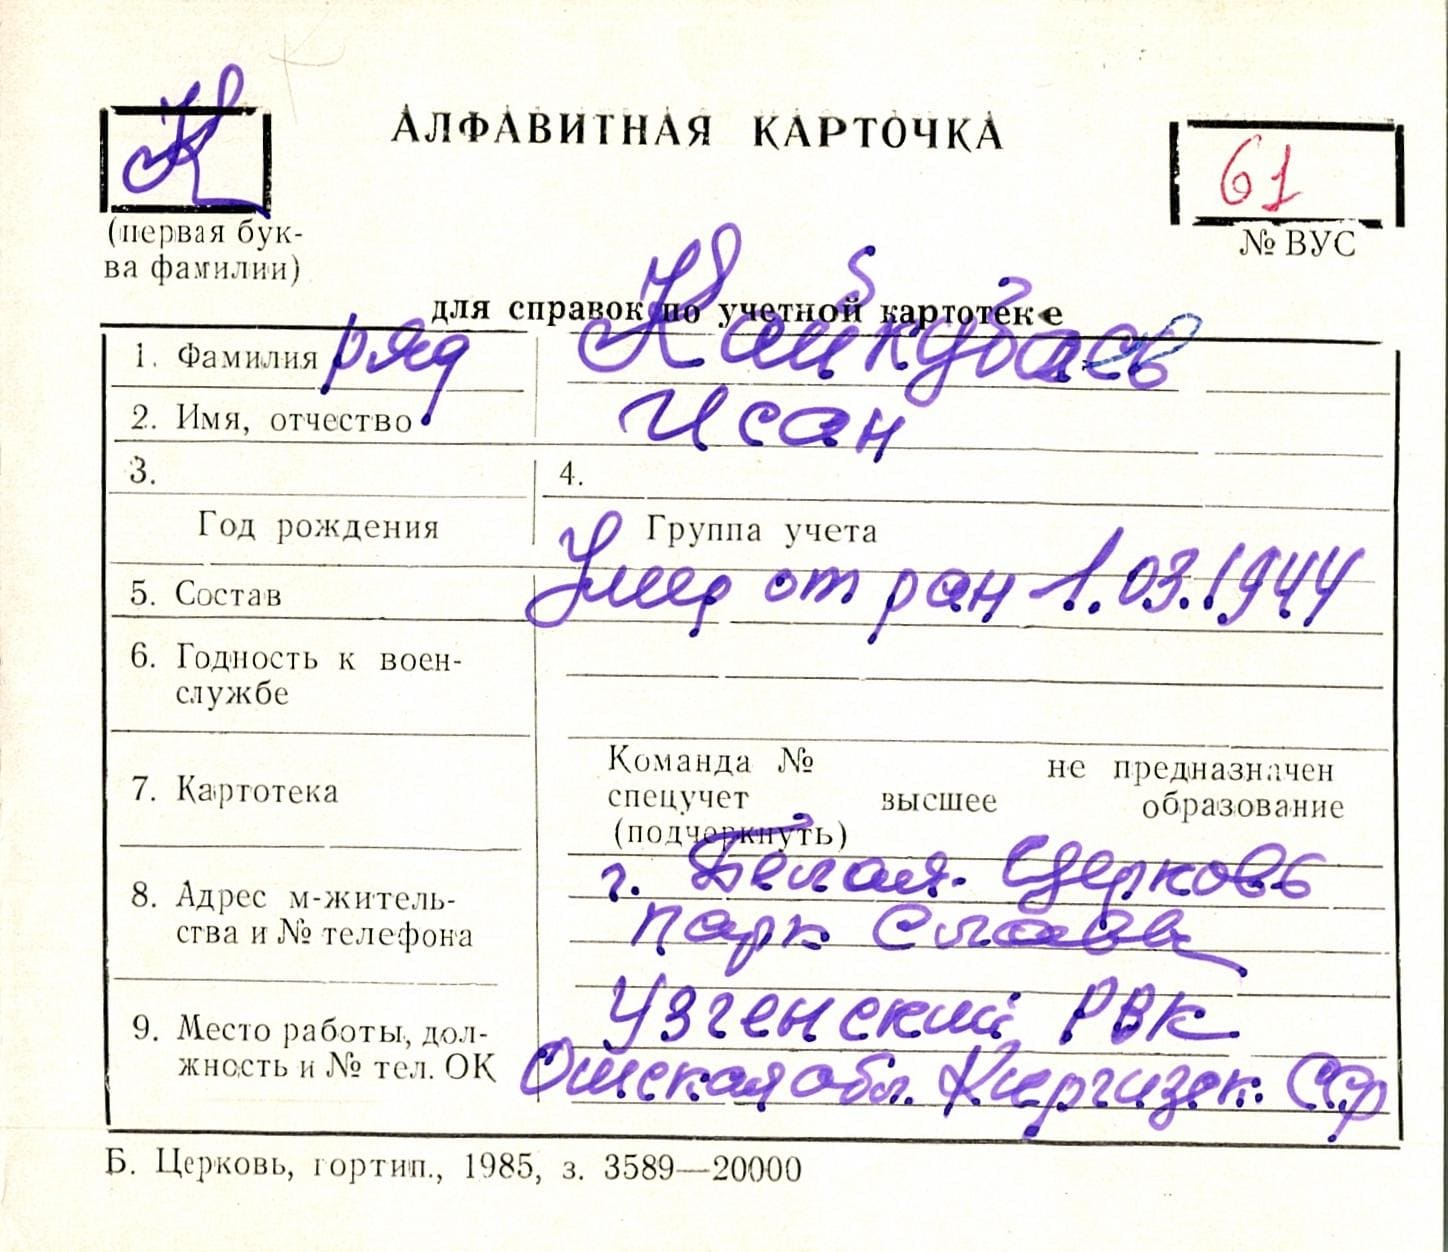 К
АЛФАВИТНАЯ КАРТОЧКА
61
(первая бук-
ва фамилии)
№ ВУС
для справок по учетной картотеке
1. Фамилия ряд Кайкубаев
2. Имя, отчество Исан
3.
4.
Год рождения
Группа учета
5. Состав Умер от ран 1.03.1944
6. Годность к воен-
службе
7. Картотека
Команда № не предназначен
спецучет высшее образование
(подчеркнуть)
8. Адрес м-житель-
ства и № телефона
г. Белая Церковь
парк Славы
9. Место работы, дол-
жность и № тел. ОК
Узгенский РВК
Ошская обл. Киргизск. ССр
Б. Церковь, гортип., 1985, з. 3589—20000